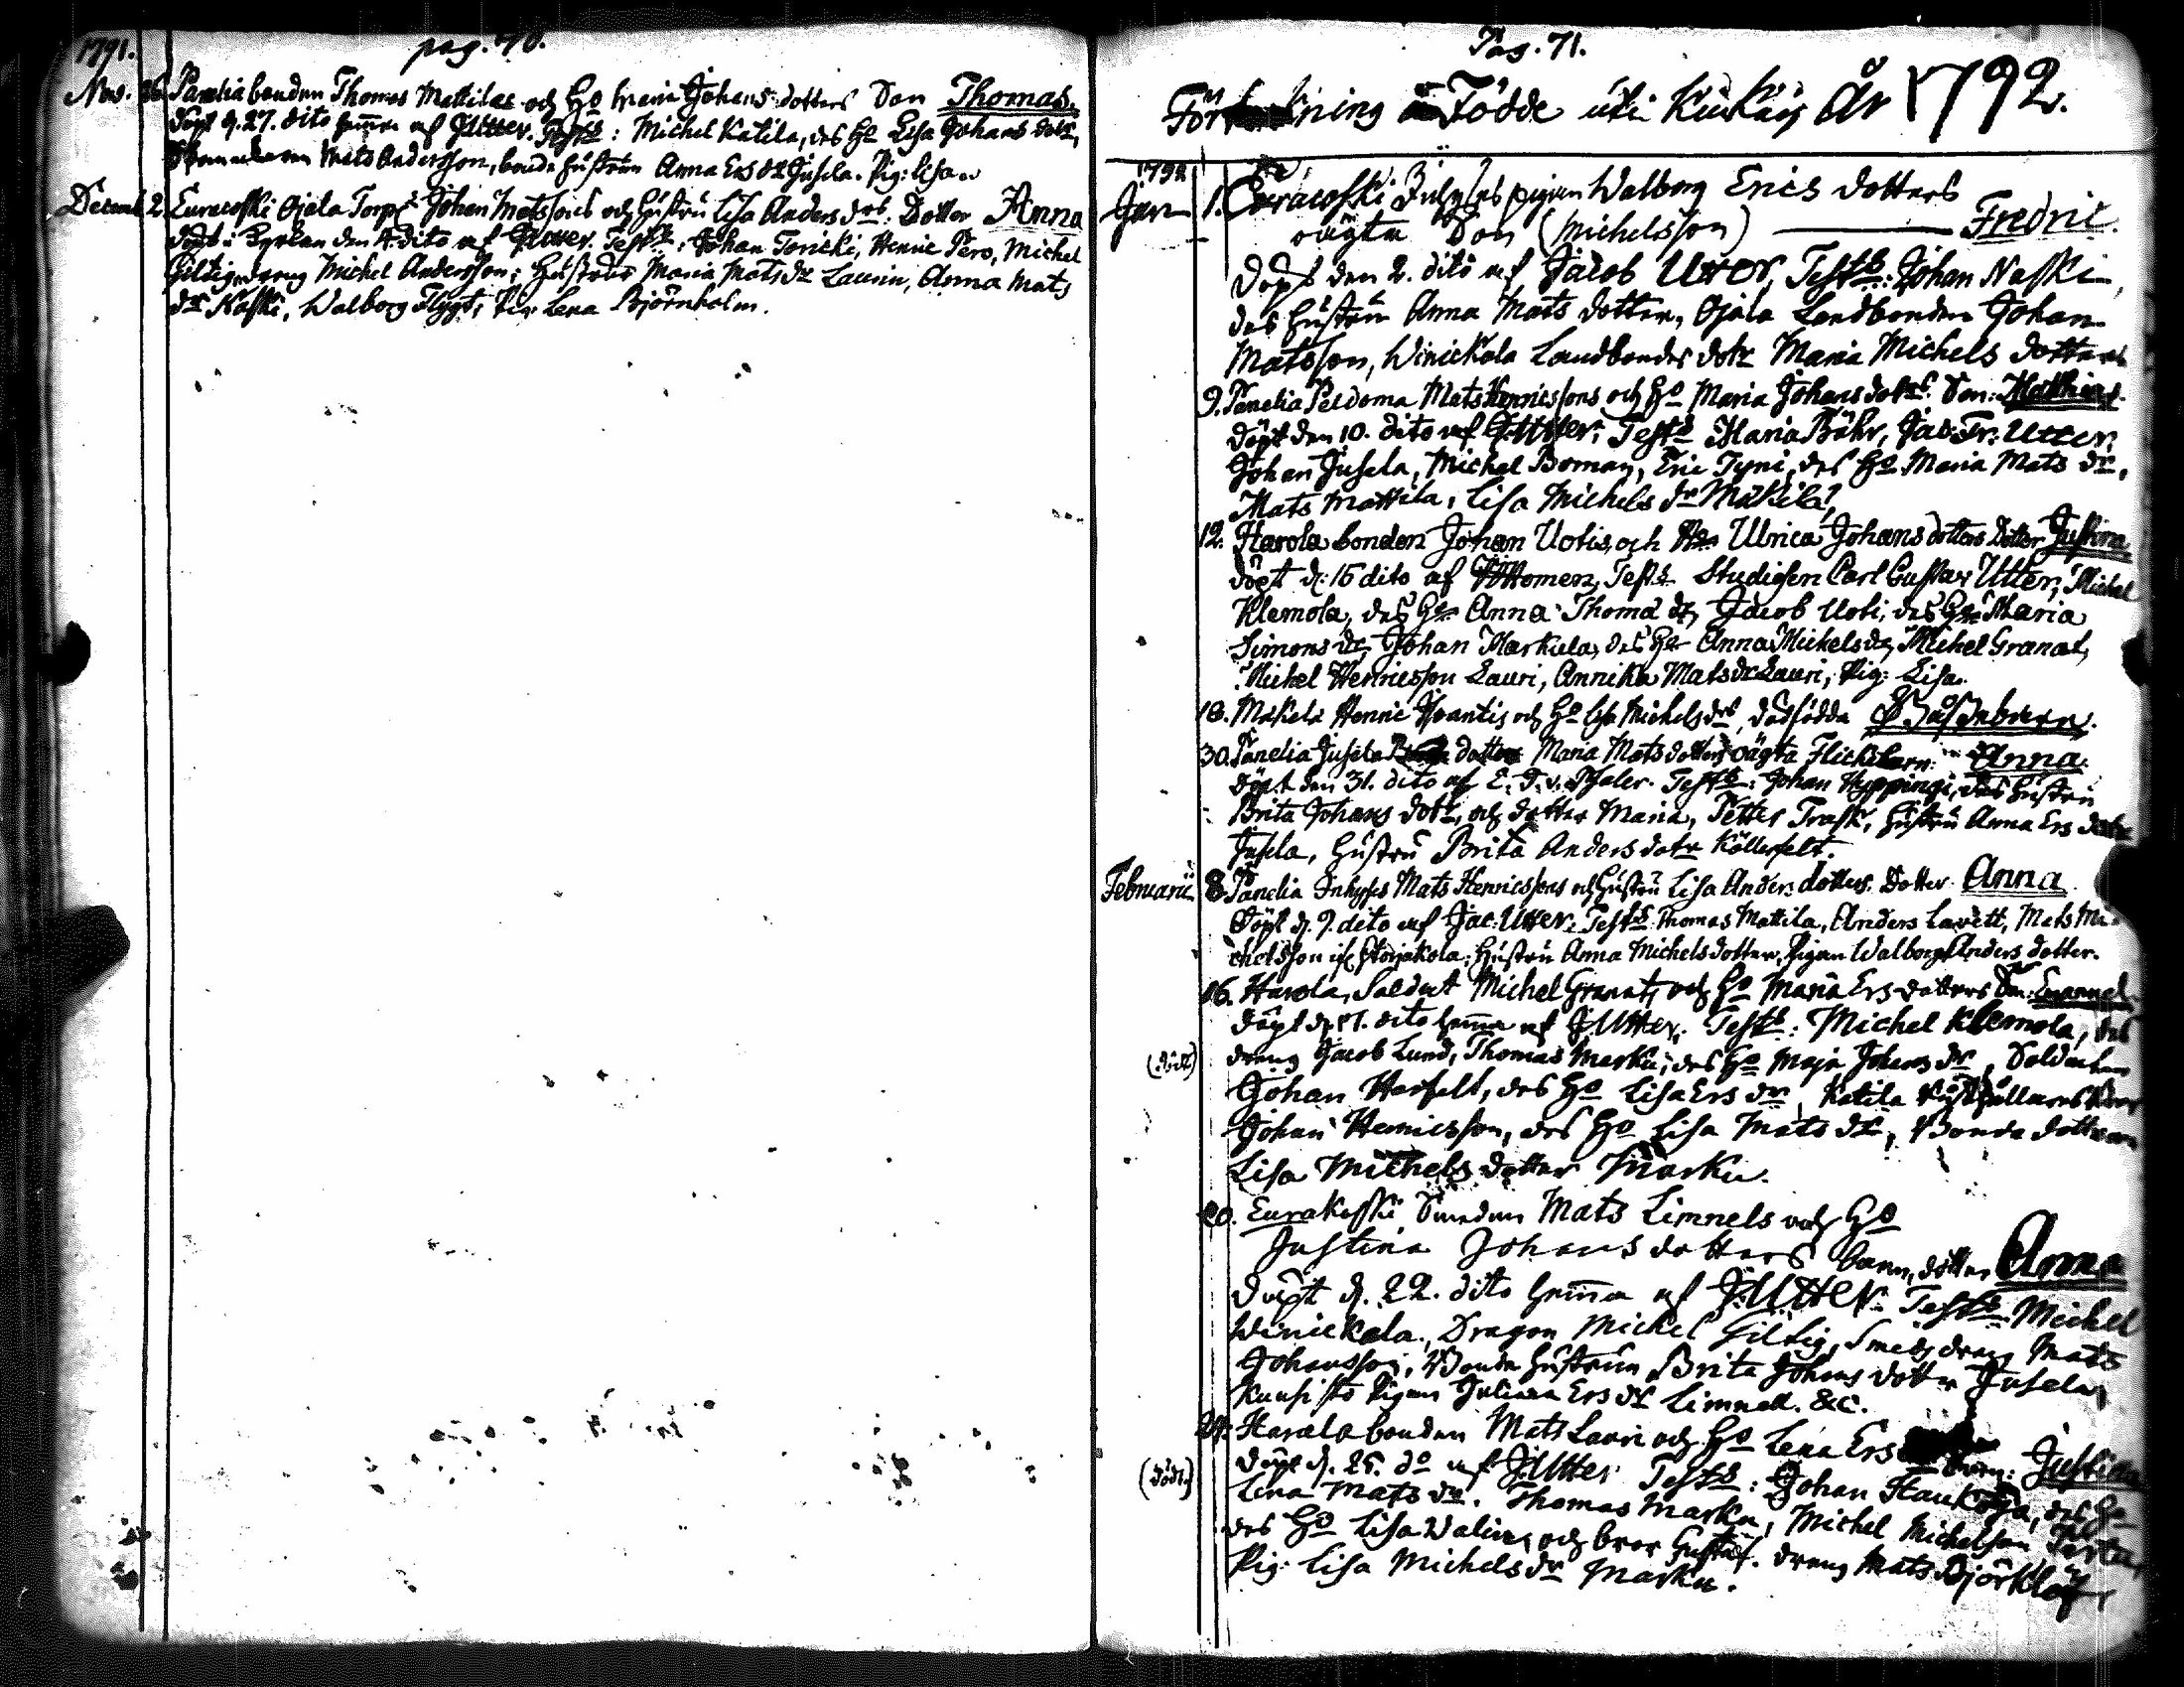 1791. pag. 70.
Nov. 26 Panelia bonden Thomas Mattilas och Ho Maria Johans dotters Son Thomas.
döpt d. 27. dito hemma af J. Utter. Test:s: Michel Katila, des Ho Lisa Johans dotr,
Mats Andersson, bonde hustrun Anna Ers dr Jusela. Pig: Lisa
Decemb. 2. Euracoski Ojala Torp: Johan Matssons och Hustru Lisa Anders drs. Dotter Anna
döpt i Kyrkan den 4. dito af J. Utter. Test:s: Johan Toricki, Henric Pero, Michel
Giltig, dreng Michel Andersson; Hustrur Maria Mats dr Laurin, Anna Mats
dr Kaski, Walborg Flygt, Pig: Lena Björnholm.
Pag. 71.
Förteckning å Födde uti Kiukais År 1792.
1792
Jan 1. Euracoski pigan Walborg Erics dotters
oägta Son (Michelsson) Fredric.
Döpt den 2. dito af Jacob Utter, Test:s: Johan Naski,
des Hustru Anna Mats dotter, Ojala Landbonden Johan
Matsson, Winickala Landbondes dotr Maria Michels dotter
9. Panelia Peldoma Mats Henricssons och Ho Maria Johans dotrs. Son: Mathias.
döpt den 10. dito af J. Utter; Test:s Maria Bähr, Jac: Fr: Utter,
Johan Jusela, Michel Boman, Eric Tyni, des Ho Maria Mats dr,
Mats Mattila, Lisa Michels dr Mäkilä.
12. Harola bonden Johan Uotis, och Ho Ulrica Johans dotters Dotter Justina
döpt d: 15 dito af Test:s Studiosen Carl Gustav Utter, Michel
Klemola, des Ho Anna Thoma dr, Jacob Uoti, des Ho Maria
Simons dr, Johan Markula, des Ho Anna Michels dr, Michel Granat,
Michel Henricsson Lauri, Annika Mats dr Lauri, Pig: Lisa.
18. Mäkelä Henric och Ho Lisa Michels drs, dödfödda Gåssebarn.
30. Panelia Jusela dotter Maria Mats dotters oägta Flickebarn: Anna.
Döpt den 31. dito af Test:s: Johan Hyppingi, des Hustru
Brita Johans dotr, och dotter Maria, Petter Trask, Hustru Anna Ers dotr
Jusela, Hustru Brita Anders dotr Köllerfelt.
Februarii 8. Panelia Inhyses Mats Henricssons och Hustru Lisa Anders dotters. Dotter Anna
Döpt d. 9. dito af Jac: Utter. Test:s: Thomas Mattila, Anders Lavett, Mats Mi-
chelsson if: Hustru Anna Michels dotter, Pigan Walborg Anders dotter.
16. Harola, Soldat Michel Granats och Ho Maria Ers dotters Son: Emanuel
döpt d. 17. dito hemma af J. Utter. Test:s: Michel Klemola, des
(död) dreng Jacob Lund, Thomas Marku, des Ho Maja Johans dr, Soldaten
Johan Herfelt, des Ho Lisa Ers dr, Katila
Johan Henricsson, des Ho Lisa Mats dr, Bonde dottren
Lisa Michels dotter Marku.
20. Eurakoski Smeden Mats Limnels och Ho
Justina Johans dotters barn, dotter Anna
döpt d. 22. dito hemma af J: Utter. Test:s Michel
Winickala, Dragon Michel Giltig, Smeds dreng Mats
Johansson, Bonde hustrun Brita Johans dotter Jusela,
Kuusisto Pigan Juliana Ers dr Limnell. &c.
24. Harola bonden Mats Lauri och Ho Lena Ers barn: Justina
döpt d. 25. do af J. Utter Test:s: Johan Haukoja, des Ho
(död.) Lena Mats dr. Thomas Marku, Michel Michelsson Perta,
des Ho Lisa Walin, och bror Gustaf. dreng Mats Björklöf,
Pig: Lisa Michels dr Marku.